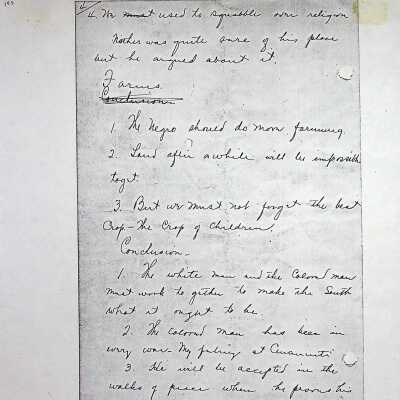 4. We must used to squabble over religion
Mother was quite sure of his place
but he argued about it.
Farms.
Conclusions
1. The Negro should do more farming.
2. Land after awhile will be impossible
to get.
3. But we must not forget the best
Crop - The Crop of Children.
Conclusion -
1. The white man and the Colored man
must work to gether to make the South
what it ought to be.
2. The colored man has been in
every war. My at Cincinnati
3. He will be accepted in the
walks of peace when he proves his